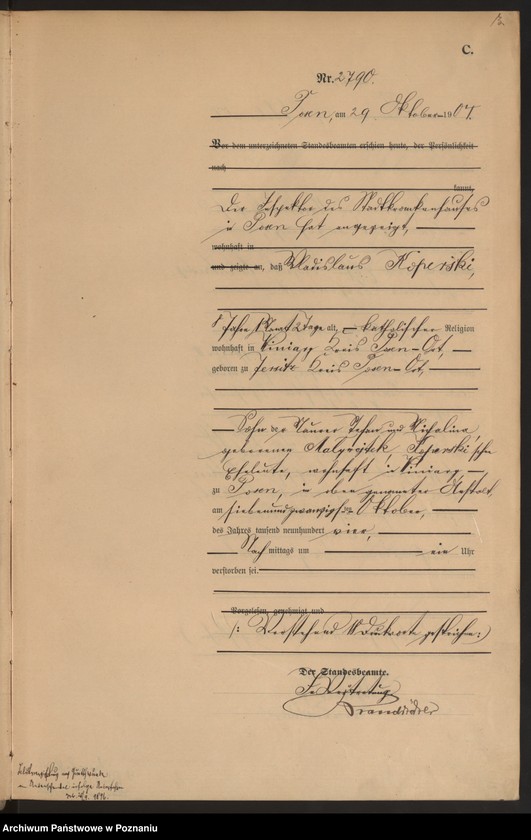 C.
Nr. 2790.
Posen, am 29 Oktober 1904.
Vor dem unterzeichneten Standesbeamten erschien heute, der Persönlichkeit
nach
kannt,
Der Inspektor des Stadtkrankenhauses
in Posen hat angezeigt,
wohnhaft in
und zeigte an, daß Wladislaus Koperski,
Jahre 2 Tage alt, katholischer Religion
wohnhaft in Winiary Kreis Posen-Ost,
geboren zu Jersitz Kreis Posen-Ost,
Sohn der Maurer Stefan und Michalina
geborenen
Eheleute, wohnhaft in Winiary,
zu Posen, in oben genannter Anstalt,
am siebenundzwanzigsten Oktober,
des Jahres tausend neunhundert vier,
Nach mittags um ein Uhr
verstorben sei.
Vorgelesen, genehmigt und
/: Vorstehend Druckworte gestrichen :/
Der Standesbeamte.
In Vertretung
Archiwum Państwowe w Poznaniu